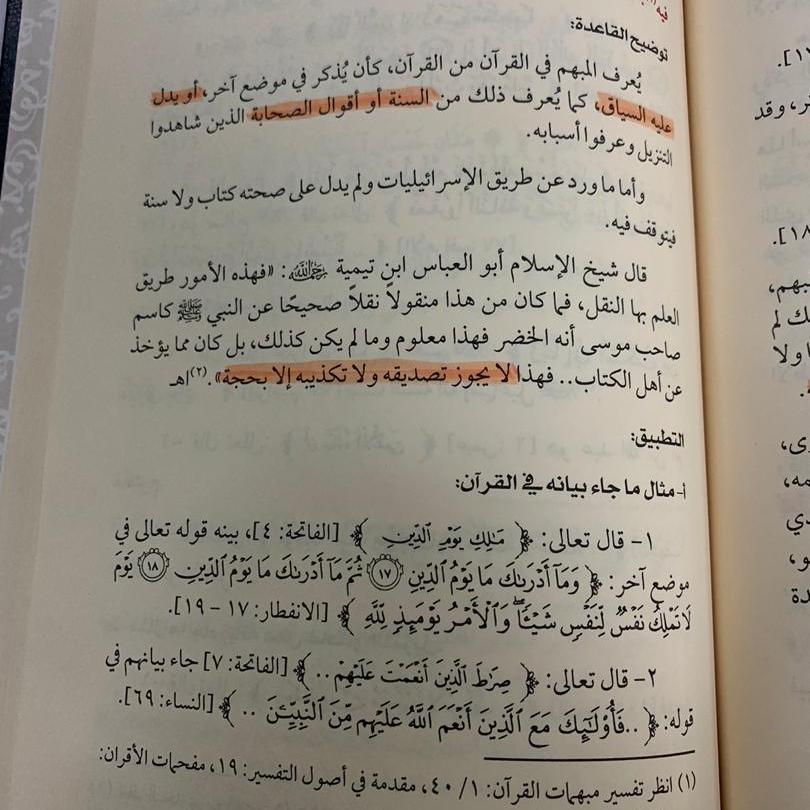 فيه
توضيح القاعدة:
يُعرف المبهم في القرآن من القرآن، كأن يُذكر في موضع آخر، أو يدل
عليه السياق، كما يُعرف ذلك من السنة أو أقوال الصحابة الذين شاهدوا
التنزيل وعرفوا أسبابه.
وأما ما ورد عن طريق الإسرائيليات ولم يدل على صحته كتاب ولا سنة
فيتوقف فيه.
قال شيخ الإسلام أبو العباس ابن تيمية رحمه الله: «فهذه الأمور طريق
العلم بها النقل، فما كان من هذا منقولاً نقلاً صحيحًا عن النبي ﷺ كاسم
صاحب موسى أنه الخضر فهذا معلوم وما لم يكن كذلك، بل كان مما يؤخذ
عن أهل الكتاب.. فهذا لا يجوز تصديقه ولا تكذيبه إلا بحجة».(٢) اهـ
التطبيق:
أ- مثال ما جاء بيانه في القرآن:
١- قال تعالى: ﴿ مَٰلِكِ يَوْمِ ٱلدِّينِ ﴾ [الفاتحة: ٤]، بينه قوله تعالى في
موضع آخر: ﴿ وَمَآ أَدْرَىٰكَ مَا يَوْمُ ٱلدِّينِ ١٧ ثُمَّ مَآ أَدْرَىٰكَ مَا يَوْمُ ٱلدِّينِ ١٨ يَوْمَ
لَا تَمْلِكُ نَفْسٌ لِّنَفْسٍ شَيْـًٔا ۖ وَٱلْأَمْرُ يَوْمَئِذٍ لِّلَّهِ ﴾ [الانفطار: ١٧ - ١٩].
٢- قال تعالى: ﴿ صِرَٰطَ ٱلَّذِينَ أَنْعَمْتَ عَلَيْهِمْ .. ﴾ [الفاتحة: ٧] جاء بيانهم في
قوله: ﴿ ..فَأُو۟لَٰٓئِكَ مَعَ ٱلَّذِينَ أَنْعَمَ ٱللَّهُ عَلَيْهِم مِّنَ ٱلنَّبِيِّـۧنَ .. ﴾ [النساء: ٦٩].
(١) انظر تفسير مبهمات القرآن: ١/ ٤٠، مقدمة في أصول التفسير: ١٩، مفحمات الأقران: